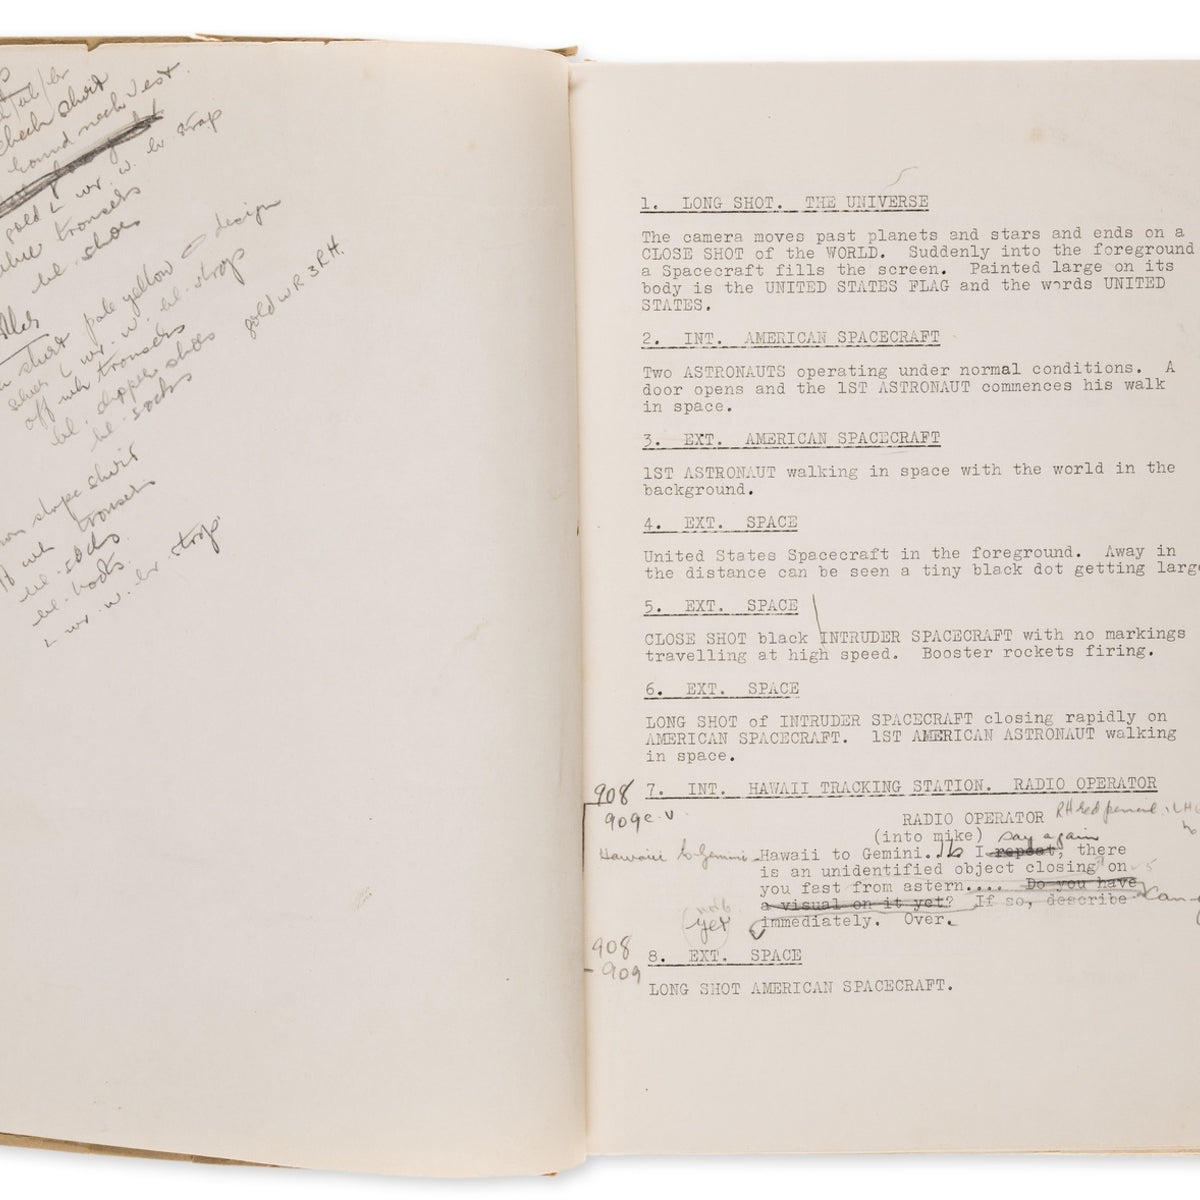 check shirt
round neck vest
gold L wr. w. br strap
trousers
bl. shoes
shirt pale yellow design
L wr. w. bl. strap
off wh trousers
bl. slipper shoes gold W R. 3 R.H.
bl. socks
shape shirt
wh trousers
bl. socks.
bl.
L wr. w. br. strap
1. LONG SHOT. THE UNIVERSE
The camera moves past planets and stars and ends on a
CLOSE SHOT of the WORLD. Suddenly into the foreground
a Spacecraft fills the screen. Painted large on its
body is the UNITED STATES FLAG and the words UNITED
STATES.
2. INT. AMERICAN SPACECRAFT
Two ASTRONAUTS operating under normal conditions. A
door opens and the 1ST ASTRONAUT commences his walk
in space.
3. EXT. AMERICAN SPACECRAFT
1ST ASTRONAUT walking in space with the world in the
background.
4. EXT. SPACE
United States Spacecraft in the foreground. Away in
the distance can be seen a tiny black dot getting large
5. EXT. SPACE
CLOSE SHOT black INTRUDER SPACECRAFT with no markings
travelling at high speed. Booster rockets firing.
6. EXT. SPACE
LONG SHOT of INTRUDER SPACECRAFT closing rapidly on
AMERICAN SPACECRAFT. 1ST AMERICAN ASTRONAUT walking
in space.
908 7. INT. HAWAII TRACKING STATION. RADIO OPERATOR
909
RADIO OPERATOR RH red pencil
(into mike) say again
Hawaii to Gemini Hawaii to Gemini... I repeat, there
is an unidentified object closing on
you fast from astern.... Do you have
a visual on it yet? If so, describe
yet immediately. Over.
908
909 8. EXT. SPACE
LONG SHOT AMERICAN SPACECRAFT.